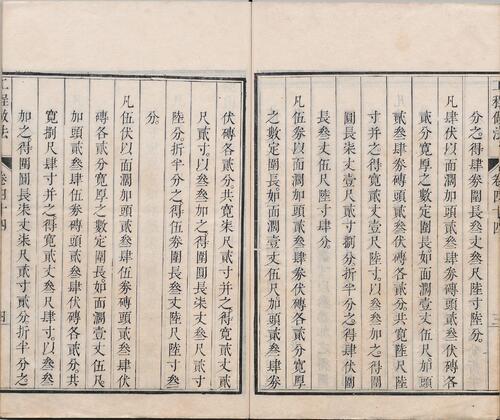 工程做法 卷四十四 三
分之得肆券圍長叁丈肆尺陸寸陸分
凡肆伏以面濶加頭貳叁肆券磚頭貳叁肆伏磚各
貳分寬厚之數定圍長如面濶壹丈伍尺加頭
貳叁肆券磚貳叁伏磚各貳分共寬陸尺
寸并之得寬貳丈壹尺陸寸以叁叁加之得圍
圓長柒丈壹尺貳寸捌分折半分之得肆伏圍
長叁丈伍尺陸寸肆分
凡伍券以面濶加頭貳叁肆券磚頭貳叁肆伏磚各貳分寬厚
之數定圍長如面濶壹丈伍尺加頭貳叁肆券
伏磚各貳分共寬柒尺貳寸并之得寬貳丈貳
尺貳寸以叁叁加之得圍圓長柒丈叁尺貳寸
陸分折半分之得伍券圍長叁丈陸尺陸寸叁
分
凡伍伏以面濶加頭貳叁肆伍券磚頭貳叁肆伏
磚各貳分寬厚之數定圍長如面濶壹丈伍尺
加頭貳叁肆伍券磚頭貳叁肆伏磚各貳分共
寬捌尺肆寸并之得寬貳丈叁尺肆寸以叁叁
加之得圍圓長柒丈柒尺貳寸貳分折半分之
工程做法 卷四十四 四